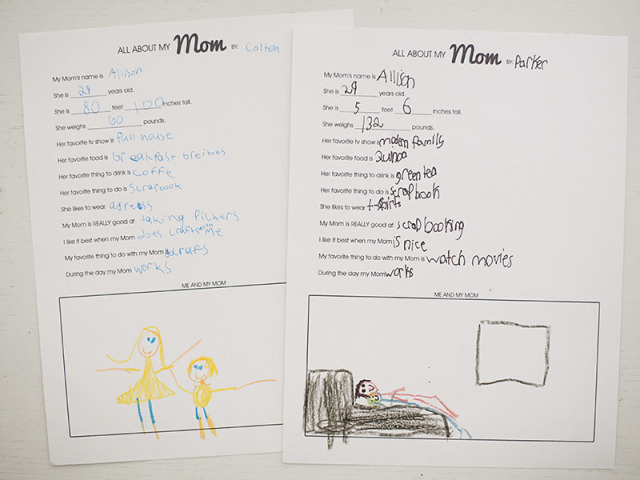 ALL ABOUT MY Mom BY: Colton
My Mom's name is Allison
She is 29 years old.
She is 80 feet 100 inches tall.
She weighs 60 pounds.
Her favorite tv show is full house
Her favorite food is breakfast breitoes
Her favorite thing to drink is coffe
Her favorite thing to do is scrapbook
She likes to wear a dress
My Mom is REALLY good at taking pichers
I like it best when my Mom does crafts with Me
My favorite thing to do with my Mom is crafts
During the day my Mom works
ME AND MY MOM
ALL ABOUT MY Mom BY: Parker
My Mom's name is Allison
She is 29 years old.
She is 5 feet 6 inches tall.
She weighs 132 pounds.
Her favorite tv show is modern family
Her favorite food is Quinoa
Her favorite thing to drink is green tea
Her favorite thing to do is scrapbook
She likes to wear t-shirts
My Mom is REALLY good at scrap booking
I like it best when my Mom is nice
My favorite thing to do with my Mom is watch movies
During the day my Mom works
ME AND MY MOM